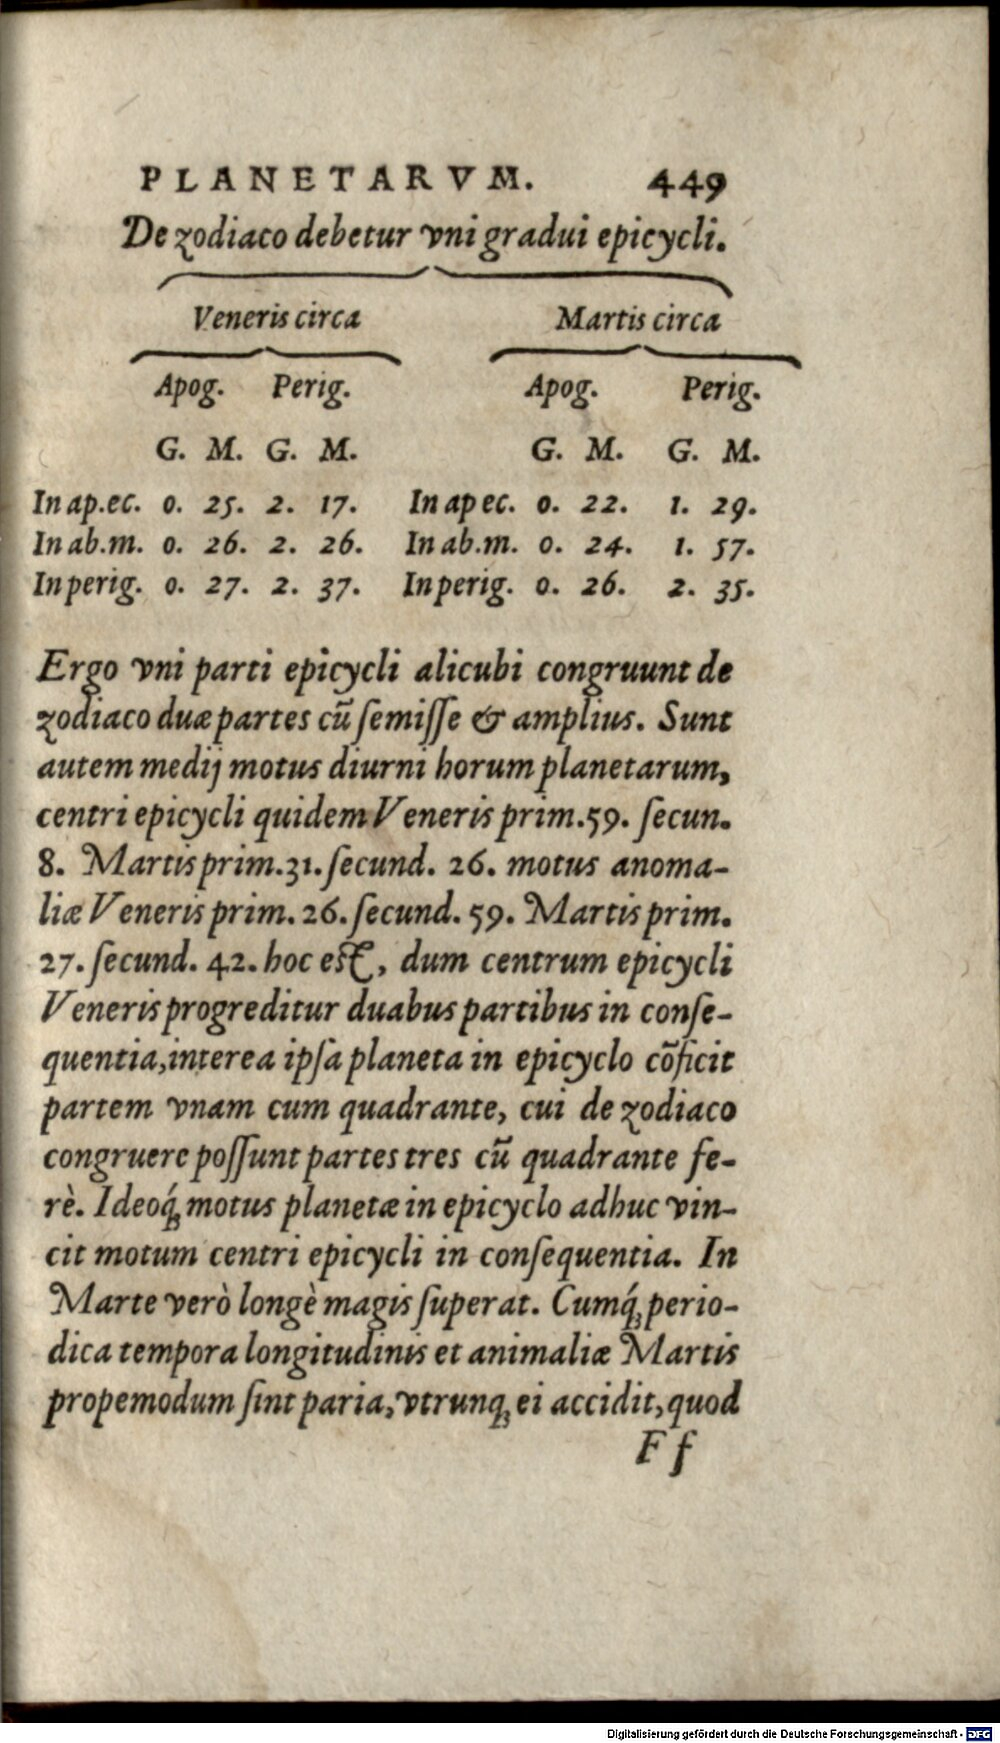 PLANETARVM. 449
De zodiaco debetur vni gradui epicycli.
Veneris circa Martis circa
Apog. Perig. Apog. Perig.
G. M. G. M. G. M. G. M.
In ap.ec. 0. 25. 2. 17. In ap ec. 0. 22. 1. 29.
In ab.m. 0. 26. 2. 26. In ab.m. 0. 24. 1. 57.
In perig. 0. 27. 2. 37. In perig. 0. 26. 2. 35.
Ergo vni parti epicycli alicubi congruunt de
zodiaco duæ partes cũ ſemiſſe & amplius. Sunt
autem medij motus diurni horum planetarum,
centri epicycli quidem Veneris prim.59. ſecun.
8. Martis prim.31. ſecund. 26. motus anoma-
liæ Veneris prim. 26. ſecund. 59. Martis prim.
27. ſecund. 42. hoc eſt, dum centrum epicycli
Veneris progreditur duabus partibus in conſe-
quentia, interea ipſa planeta in epicyclo cõficit
partem vnam cum quadrante, cui de zodiaco
congruere poſſunt partes tres cũ quadrante fe-
rè. Ideoq́; motus planetæ in epicyclo adhuc vin-
cit motum centri epicycli in conſequentia. In
Marte verò longè magis ſuperat. Cumq́; perio-
dica tempora longitudinis et animaliæ Martis
propemodum ſint paria, vtrunq; ei accidit, quod
F f
Digitalisierung gefördert durch die Deutsche Forschungsgemeinschaft - DFG